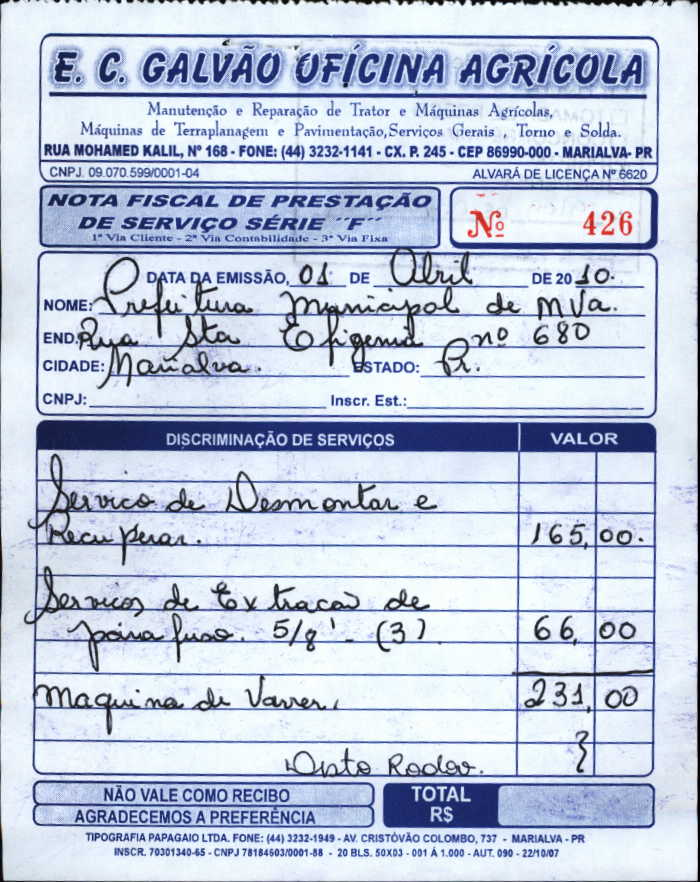 E. C. GALVÃO OFÍCINA AGRÍCOLA
Manutenção e Reparação de Trator e Máquinas Agrícolas,
Máquinas de Terraplanagem e Pavimentação,Serviços Gerais , Torno e Solda.
RUA MOHAMED KALIL, Nº 168 - FONE: (44) 3232-1141 - CX. P. 245 - CEP 86990-000 - MARIALVA- PR
CNPJ. 09.070.599/0001-04 ALVARÁ DE LICENÇA Nº 6620
NOTA FISCAL DE PRESTAÇÃO
DE SERVIÇO SÉRIE ´´F´´
1ª Via Cliente - 2ª Via Contabilidade - 3ª Via Fixa
Nº 426
DATA DA EMISSÃO, 01 DE Abril DE 2010.
NOME: Prefeitura Municipal de MVa.
END. Rua Sta Efigenia nº 680
CIDADE: Marialva. ESTADO: Pr.
CNPJ: Inscr. Est.:
DISCRIMINAÇÃO DE SERVIÇOS VALOR
Servico de Desmontar e
Recuperar. 165,00.
Servicos de Extracaõ de
parafuso. 5/8' - (3) 66,00
Maquina de Varrer. 231,00
Dpto Rodov.
NÃO VALE COMO RECIBO
AGRADECEMOS A PREFERÊNCIA
TOTAL
R$
TIPOGRAFIA PAPAGAIO LTDA. FONE: (44) 3232-1949 - AV. CRISTÓVÃO COLOMBO, 737 - MARIALVA - PR
INSCR. 70301340-65 - CNPJ 78184603/0001-88 - 20 BLS. 50X03 - 001 Á 1.000 - AUT. 090 - 22/10/07